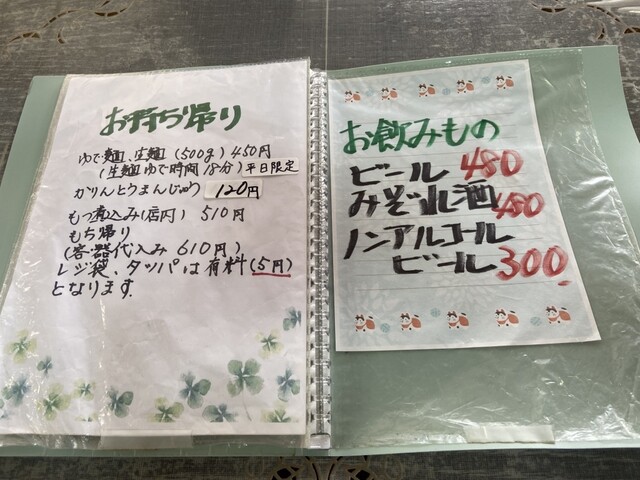 お持ち帰り
ゆで麺、生麺(500g)450円
(生麺ゆで時間18分)平日限定
かりんとうまんじゅう 120円
もつ煮込み(店内) 510円
もち帰り
(容器代込み 610円)
レジ袋、タッパは有料(5円)
となります.
お飲みもの
ビール 480
みぞれ酒 480
ノンアルコール
ビール 300